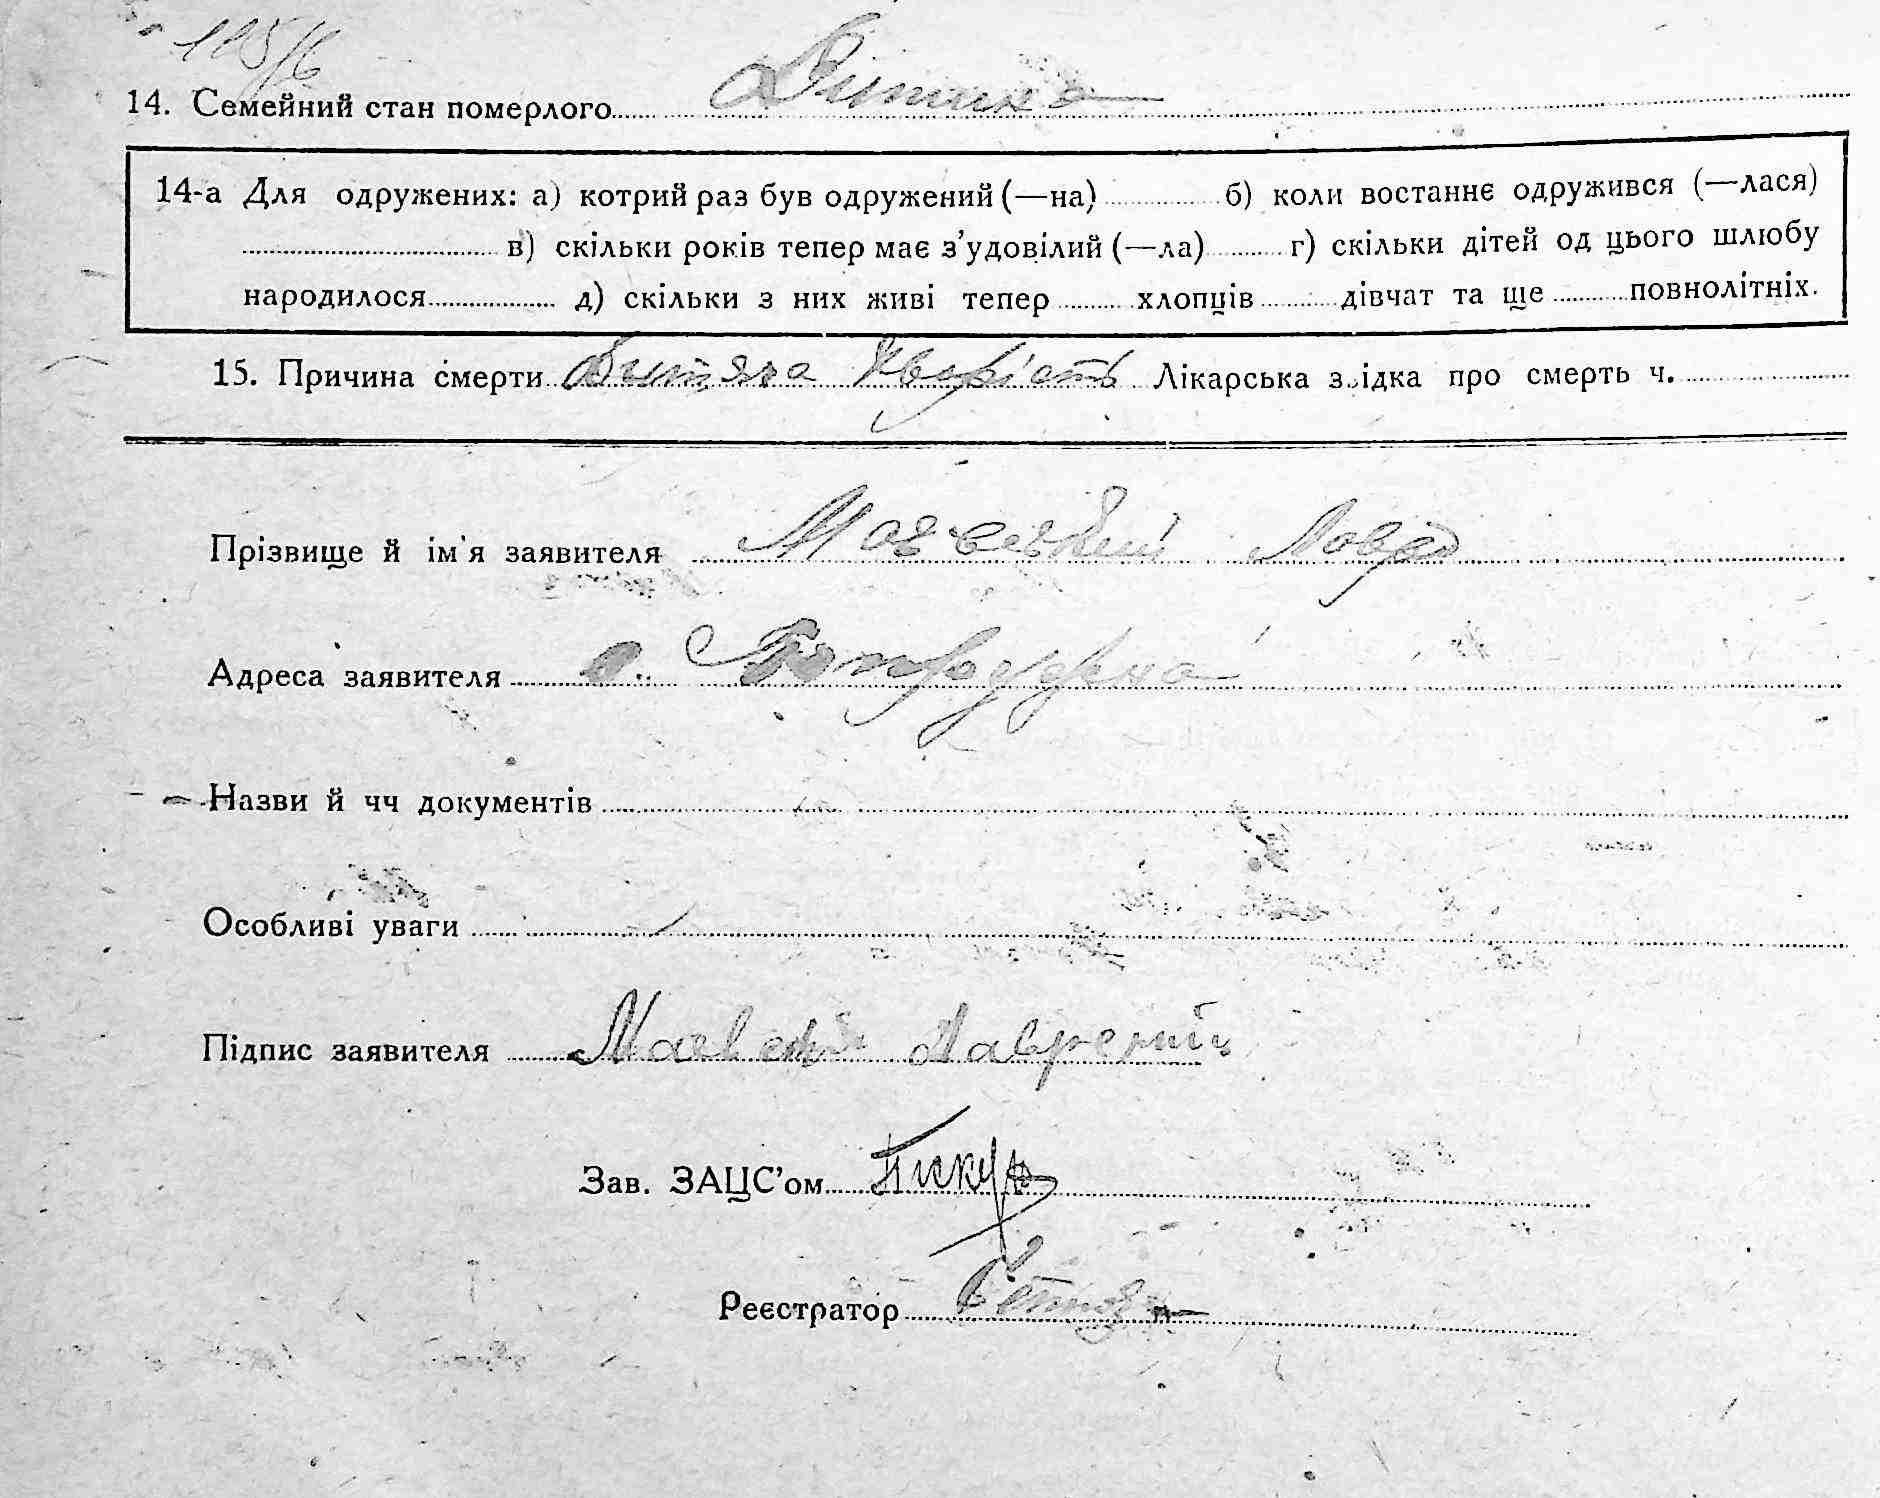 195/6
14. Семейний стан померлого Дитина
14-а Для одружених: а) котрий раз був одружений (—на) б) коли востаннє одружився (—лася)
в) скільки років тепер має з’удовілий (—ла) г) скільки дітей од цього шлюбу
народилося д) скільки з них живі тепер хлопців дівчат та ще повнолітніх.
15. Причина смерти Дитяча Хворість Лікарська звідка про смерть ч.
Прізвище й ім'я заявителя Маєвский Лавро
Адреса заявителя с.
Назви й чч документів
Особливі уваги
Підпис заявителя Маевский Лаврентий
Зав. ЗАЦС’ом
Реєстратор